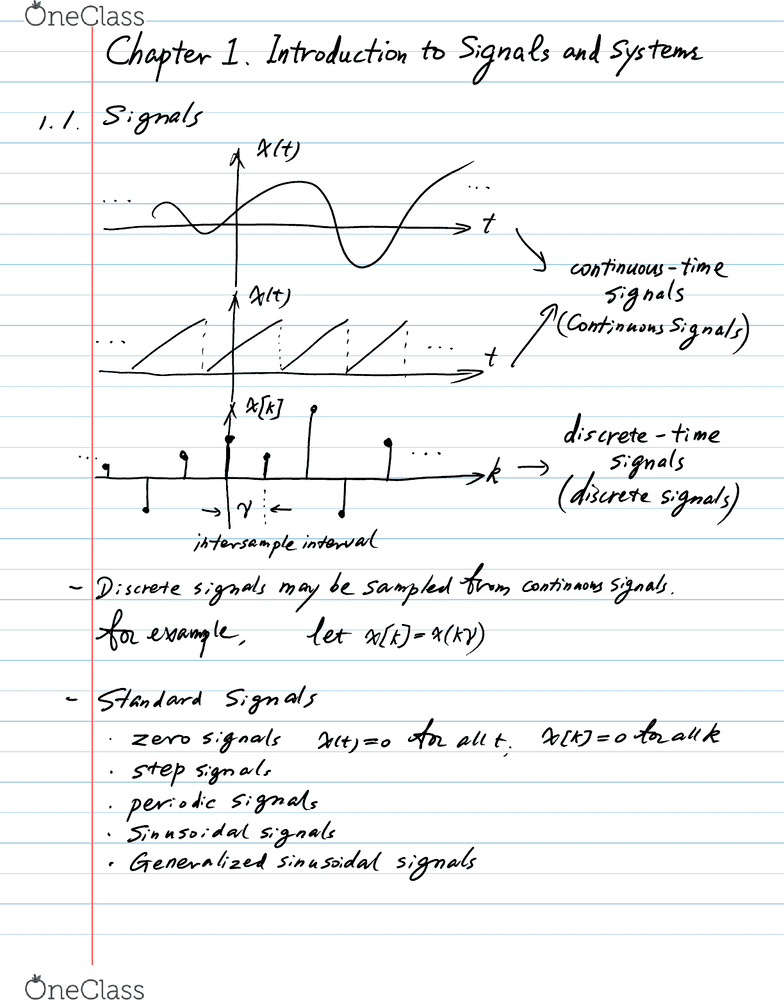 OneClass
Chapter 1. Introduction to Signals and Systems
1.1. Signals
x(t)
... ...
t
continuous-time
signals
(Continuous Signals)
x(t)
... ...
t
x[k]
... ...
k
discrete-time
signals
(discrete signals)
γ
intersample interval
- Discrete signals may be sampled from continuous signals.
for example, let x[k]=x(kγ)
- Standard Signals
· zero signals x(t)=0 for all t, x[k]=0 for all k
· step signals
· periodic signals
· Sinusoidal signals
· Generalized sinusoidal signals
OneClass